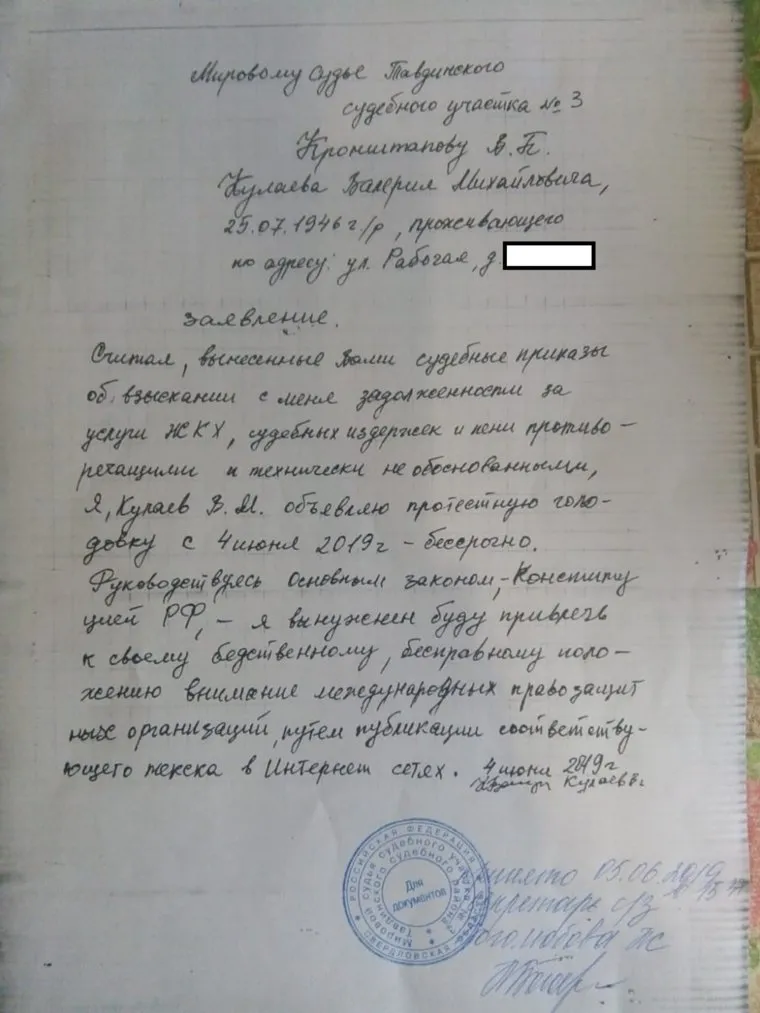 Мировому судье Тавдинского
судебного участка № 3
Кронштапову В.П.
Кулаева Валерия Михайловича,
25.07.1946 г/р, проживающего
по адресу: ул. Рабочая, д.
Заявление.
Считая, вынесенные Вами судебные приказы
об взыскании с меня задолженности за
услуги ЖКХ, судебных издержек и пени противо-
речащими и технически не обоснованными,
Я, Кулаев В.М. объявляю протестную голо-
довку с 4 июня 2019г - бессрочно.
Руководствуясь основным законом,-Конститу
цией РФ, - я вынужнен буду привлечь
к своему бедственному, бесправному поло-
жению внимание международных правозащит
ных организаций, путем публикации соответству-
ющего текста в Интернет сетях. 4 июня 2019г
Кулаев В
РОССИЙСКАЯ ФЕДЕРАЦИЯ
СВЕРДЛОВСКАЯ
Мировой судья судебного участка № 3
Тавдинского судебного района
Для
документов
05.06.2019
секретарь с/з